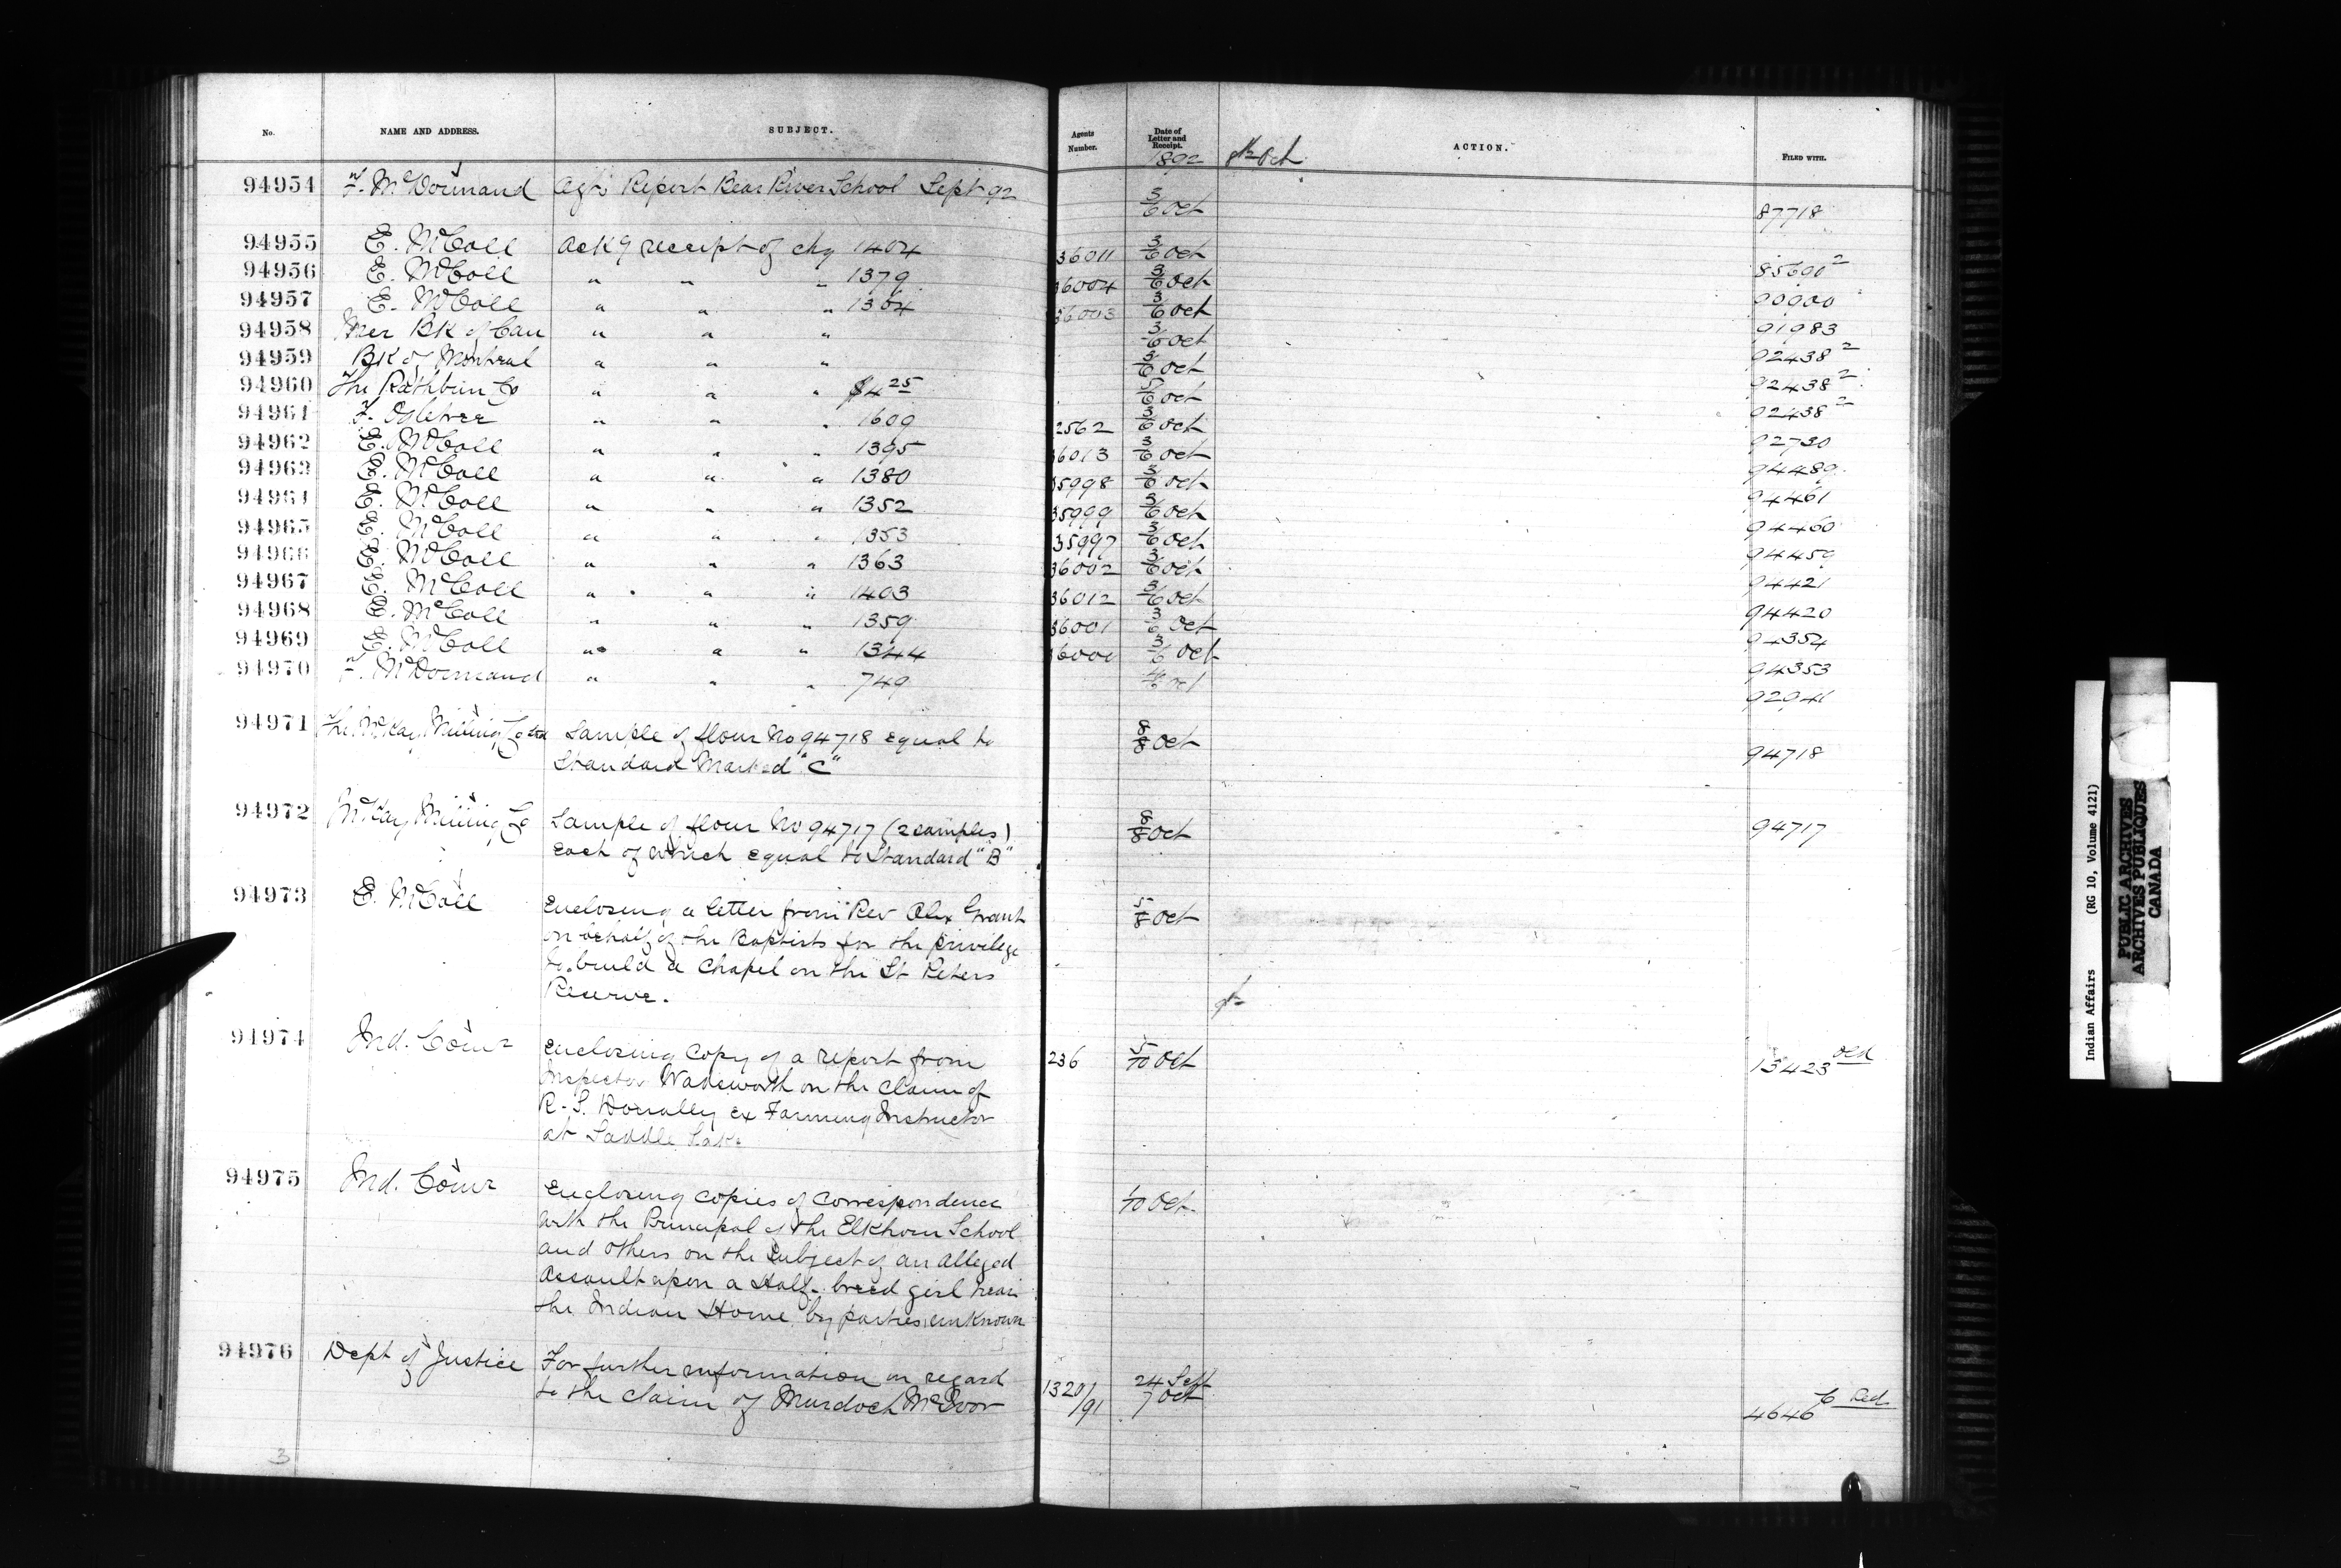 No. NAME AND ADDRESS. SUBJECT. Agents Number. Date of Letter and Receipt. ACTION. FILED WITH.
1892 8th Oct
94954 F. McDormand Agts Report Bear River School Sept 92 3/6 Oct 87718
94955 E. McColl Ackg receipt of chq 1404 36011 3/6 Oct 85690 2
94956 E. McColl " " " 1379 36004 3/6 Oct 90900
94957 E. McColl " " " 1304 36003 3/6 Oct 91983
94958 Mer Bk of Can " " " 3/6 Oct 92438 2
94959 Bk of Montreal " " " 3/6 Oct 92438 2
94960 The Rathbun Co " " " $4 25 5/6 Oct 92438 2
94961 F. Ogletree " " " 1609 2562 3/6 Oct 92730
94962 E. McColl " " " 1395 36013 3/6 Oct 94489
94963 E. McColl " " " 1380 35998 3/6 Oct 94461
94964 E. McColl " " " 1352 35999 3/6 Oct 94460
94965 E. McColl " " " 1353 35997 3/6 Oct 94459
94966 E. McColl " " " 1363 36002 3/6 Oct 94421
94967 E. McColl " " " 1403 36012 3/6 Oct 94420
94968 E. McColl " " " 1359 36001 3/6 Oct 94354
94969 E. McColl " " " 1344 36000 3/6 Oct 94353
94970 F. McDormand " " " 749 4/6 Oct 92941
94971 The McKay Milling Co Ltd Sample of flour No 94718 equal to 8/8 Oct 94718
Standard Marked "C"
94972 McKay Milling Co Sample of flour No 94717 (2 samples) 8/8 Oct 94717
each of which equal to Standard "B"
94973 E. McColl Enclosing a letter from Rev Alex Grant 5/8 Oct
on behalf of the Baptists for the privilege
to build a Chapel on the St Peters
Reserve.
94974 Ind. Comr Enclosing Copy of a report from 236 5/10 Oct 13423 Old
Inspector Wadsworth on the claim of
R. S. ex Farming Instructor
at Saddle Lake
94975 Ind. Comr Enclosing copies of Correspondence /10 Oct
with the Principal of the Elkhorn School
and others on the Subject of an Alleged
Assault upon a Half-breed girl near
the Indian Home by parties unknown
94976 Dept of Justice For further information in regard 1320/91 24 Sept
to the claim of Murdoch McIvor 7 Oct 4646 Red
3
Indian Affairs (RG 10, Volume 4121)
PUBLIC ARCHIVES
ARCHIVES PUBLIQUES
CANADA